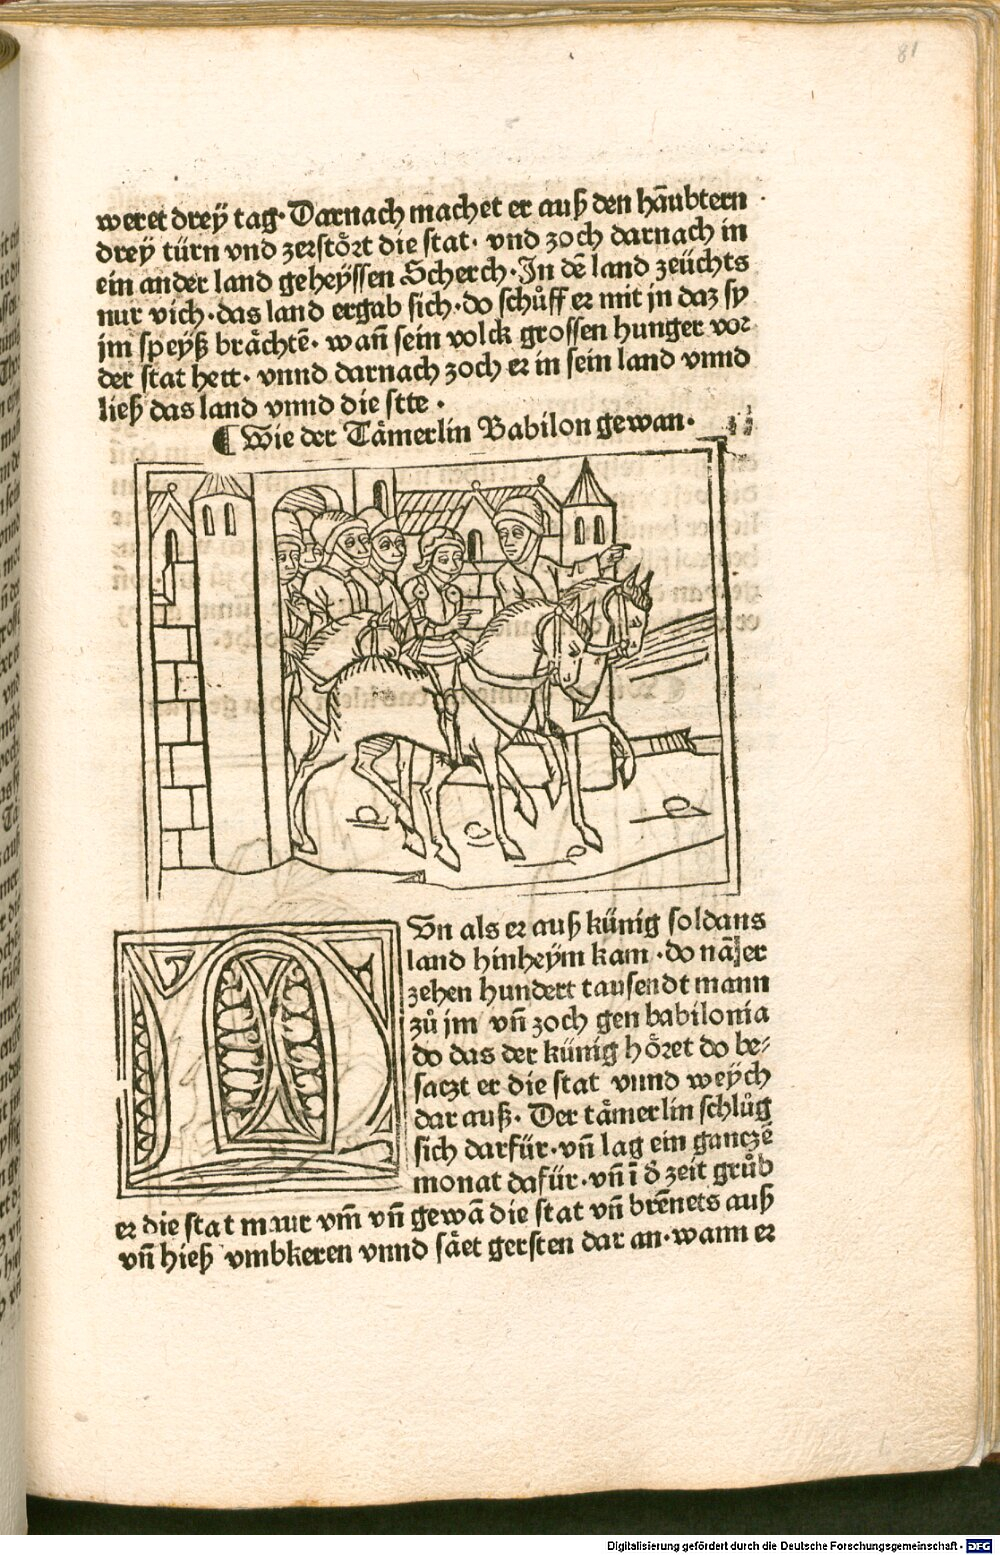 81
weret drey tag. Darnach machet er auß den haͤubtern
drey türn vnd zerstoͤrt die stat. vnd zoch darnach in
ein ander land geheyssen Scherch. In dē land zeüchts
nur vich. das land ergab sich. do schůff er mit jn daz sy
jm speyß braͤchtē. wañ sein volck grossen hunger vor
der stat hett. vnnd darnach zoch er in sein land vnnd
ließ das land vnnd die stte.
¶ Wie der Taͤmerlin Babilon gewan.
NVn als er auß künig soldans
land hinheym kam. do nā er
zehen hundert tausendt mann
zů jm vñ zoch gen babilonia
do das der künig hoͤret do be⸗
saczt er die stat vnnd weych
dar auß. Der taͤmerlin schlůg
sich darfür. vñ lag ein ganczē
monat dafür. vñ ī d̄ zeit grůb
er die stat maur vm̄ vñ gewā die stat vñ brēnets auß
vñ hieß vmbkeren vnnd saͤet gersten dar an. wann er
Digitalisierung gefördert durch die Deutsche Forschungsgemeinschaft - DFG